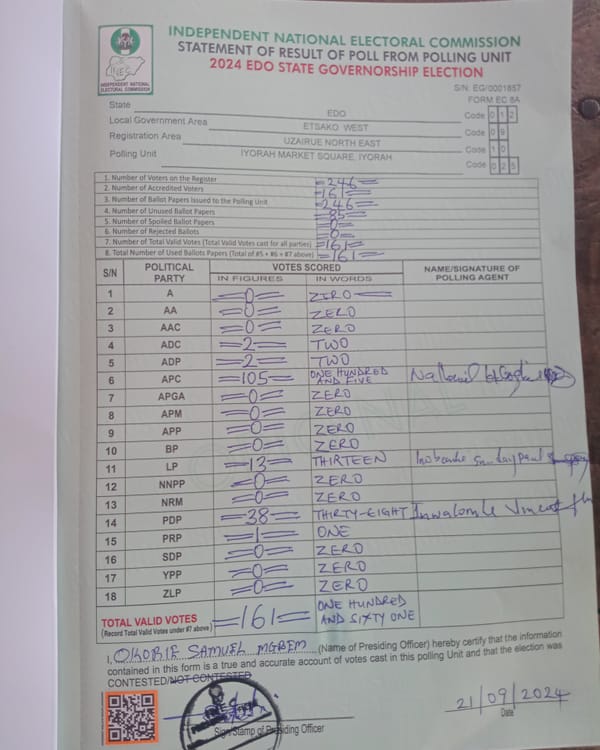 INDEPENDENT NATIONAL ELECTORAL COMMISSION
STATEMENT OF RESULT OF POLL FROM POLLING UNIT
2024 EDO STATE GOVERNORSHIP ELECTION
INEC
INDEPENDENT NATIONAL ELECTORAL COMMISSION
S/N: EG/0001857
FORM EC 8A
State EDO Code 012
Local Government Area ETSAKO WEST Code 09
Registration Area UZAIRUE NORTH EAST Code 10
Polling Unit IYORAH MARKET SQUARE, IYORAH Code 025
1. Number of Voters on the Register =246=
2. Number of Accredited Voters =161=
3. Number of Ballot Papers Issued to the Polling Unit =246=
4. Number of Unused Ballot Papers =85=
5. Number of Spoiled Ballot Papers =0=
6. Number of Rejected Ballots =0=
7. Number of Total Valid Votes (Total Valid Votes cast for all parties) =161=
8. Total Number of Used Ballots Papers (Total of #5 + #6 + #7 above) =161=
S/N POLITICAL PARTY VOTES SCORED NAME/SIGNATURE OF POLLING AGENT
IN FIGURES IN WORDS
1 A =0= ZERO
2 AA =0= ZERO
3 AAC =0= ZERO
4 ADC =2= TWO
5 ADP =2= TWO
6 APC =105= ONE HUNDRED AND FIVE
7 APGA =0= ZERO
8 APM =0= ZERO
9 APP =0= ZERO
10 BP =0= ZERO
11 LP =13= THIRTEEN
12 NNPP =0= ZERO
13 NRM =0= ZERO
14 PDP =38= THIRTY-EIGHT
15 PRP =1= ONE
16 SDP =0= ZERO
17 YPP =0= ZERO
18 ZLP =0= ZERO
TOTAL VALID VOTES =161= ONE HUNDRED AND SIXTY ONE
(Record Total Valid Votes under #7 above)
I, OKORIE SAMUEL MGBEM (Name of Presiding Officer) hereby certify that the information
contained in this form is a true and accurate account of votes cast in this polling Unit and that the election was
CONTESTED/NOT CONTESTED
Sign/Stamp of Presiding Officer
21/09/2024
Date